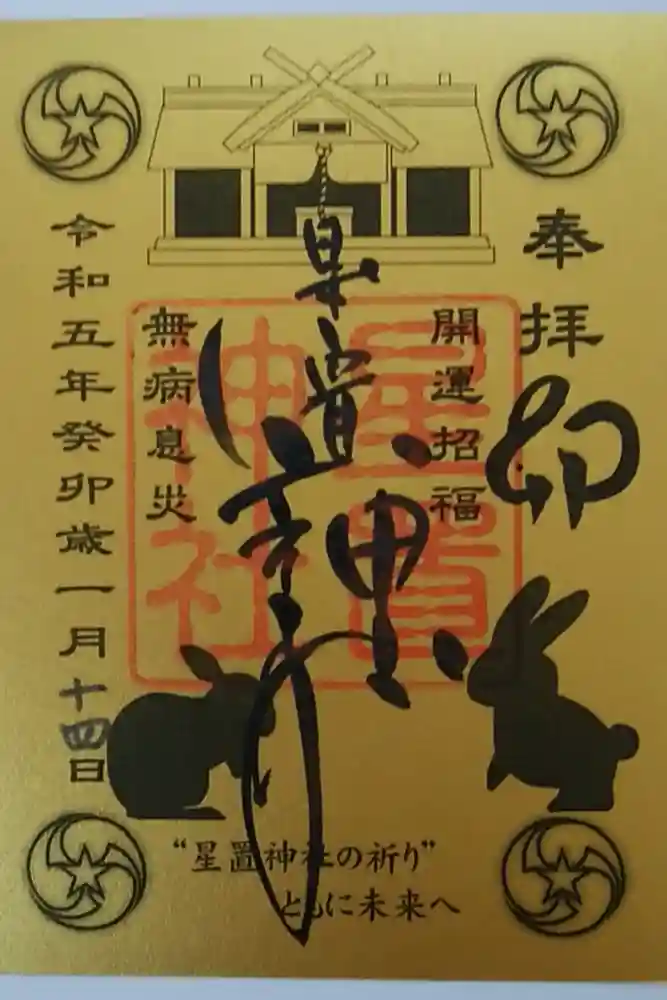 奉拝
卯
開運招福
星置神社
無病息災
令和五年癸卯歳一月十四日
“星置神社の祈り”
ともに未来へ